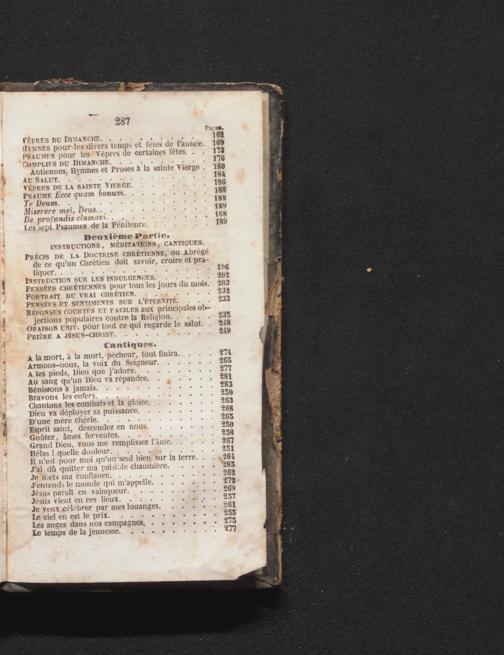 287
Pages.
VÊPRES DU DIMANCHE. 162
HYMNES pour les divers temps et fêtes de l'année. 169
PSAUMES pour les Vêpres de certaines fêtes. 172
COMPLIES DU DIMANCHE. 176
Antiennes, Hymnes et Proses à la sainte Vierge. 180
AU SALUT. 184
VÊPRES DE LA SAINTE VIERGE. 186
PSAUME Ecce quam bonum. 188
Te Deum. 188
Miserere mei, Deus. 189
De profundis clamavi. 168
Les sept Psaumes de la Pénitence. 189
Deuxième Partie.
INSTRUCTIONS, MÉDITATIONS, CANTIQUES.
PRÉCIS DE LA DOCTRINE CHRÉTIENNE, ou Abrégé
de ce qu'un Chrétien doit savoir, croire et pra-
tiquer. 196
INSTRUCTION SUR LES INDULGENCES. 202
PENSÉES CHRÉTIENNES pour tous les jours du mois. 203
PORTRAIT DU VRAI CHRÉTIEN. 232
PENSÉES ET SENTIMENTS SUR L'ÉTERNITÉ. 233
RÉPONSES COURTES ET FACILES aux principales ob-
jections populaires contre la Religion. 235
ORAISON UNIV. pour tout ce qui regarde le salut. 248
PRIÈRE A JÉSUS-CHRIST. 249
Cantiques.
A la mort, à la mort, pécheur, tout finira. 274
Armons-nous, la voix du Seigneur. 265
A tes pieds, Dieu que j'adore. 277
Au sang qu'un Dieu va répandre. 281
Bénissons à jamais. 283
Bravons les enfers. 259
Chantons les combats et la gloire. 263
Dieu va déployer sa puissance. 268
D'une mère chérie. 265
Esprit saint, descendez en nous. 250
Goûtez, âmes ferventes. 258
Grand Dieu, vous me remplissez l'âme. 267
Hélas ! quelle douleur. 251
Il n'est pour moi qu'un seul bien sur la terre. 264
J'ai dû quitter ma paisible chaumière. 285
Je mets ma confiance. 262
J'entends le monde qui m'appelle. 272
Jésus paraît en vainqueur. 269
Jésus vient en ces lieux. 257
Je veux célébrer par mes louanges. 261
Le ciel en est le prix. 255
Les anges dans nos campagnes. 275
Le temps de la jeunesse. 277